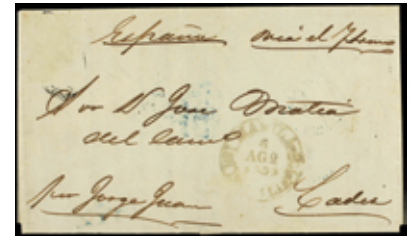 España via el Istmo
Sor Dn. José Matia
del Calvo
6
AGO
por Jorge Juan Cadiz